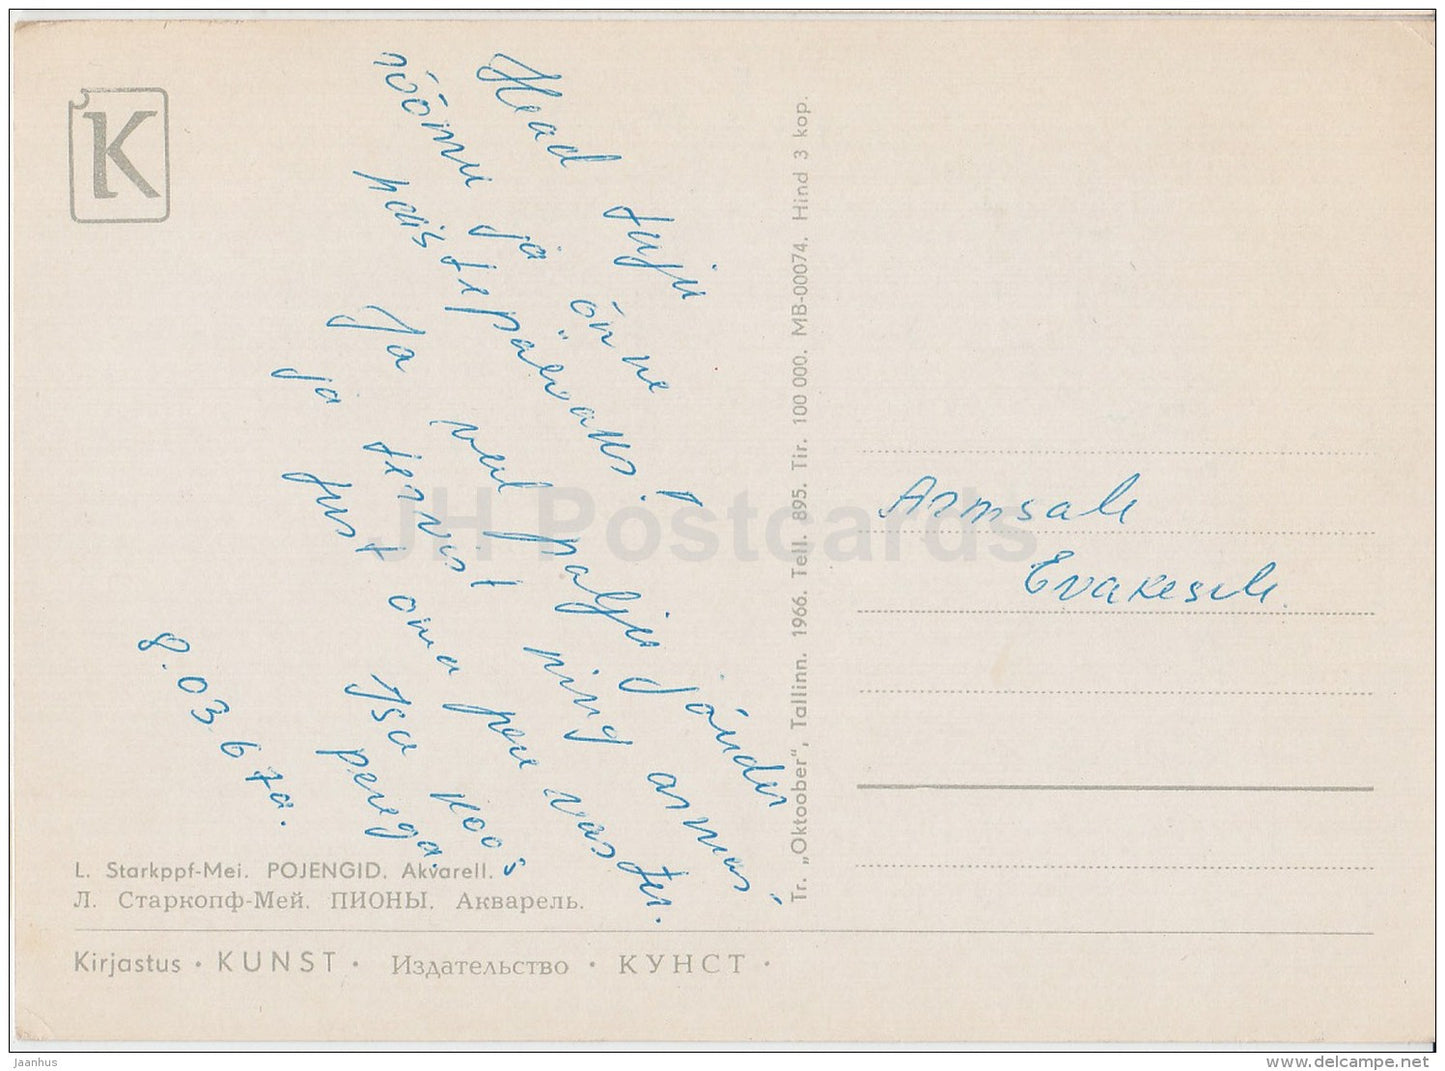 K
Head tuju
rõõmu ja õnne
naistepäevaks!
Ja veel palju jõudu
ja tervist ning armas-
tust oma pere vastu.
Isa koos
perega.
8.03.67a.
L. Starkppf-Mei. POJENGID. Akvarell.
Л. Старкопф-Мей. ПИОНЫ. Акварель.
Kirjastus · KUNST · Издательство · КУНСТ ·
Tr. „Oktoober“, Tallinn. 1966. Tell. 895. Tir. 100 000. MB-00074. Hind 3 kop.
Armsale
Evakesele.
JH Postcards
jaanhus
www.delcampe.net